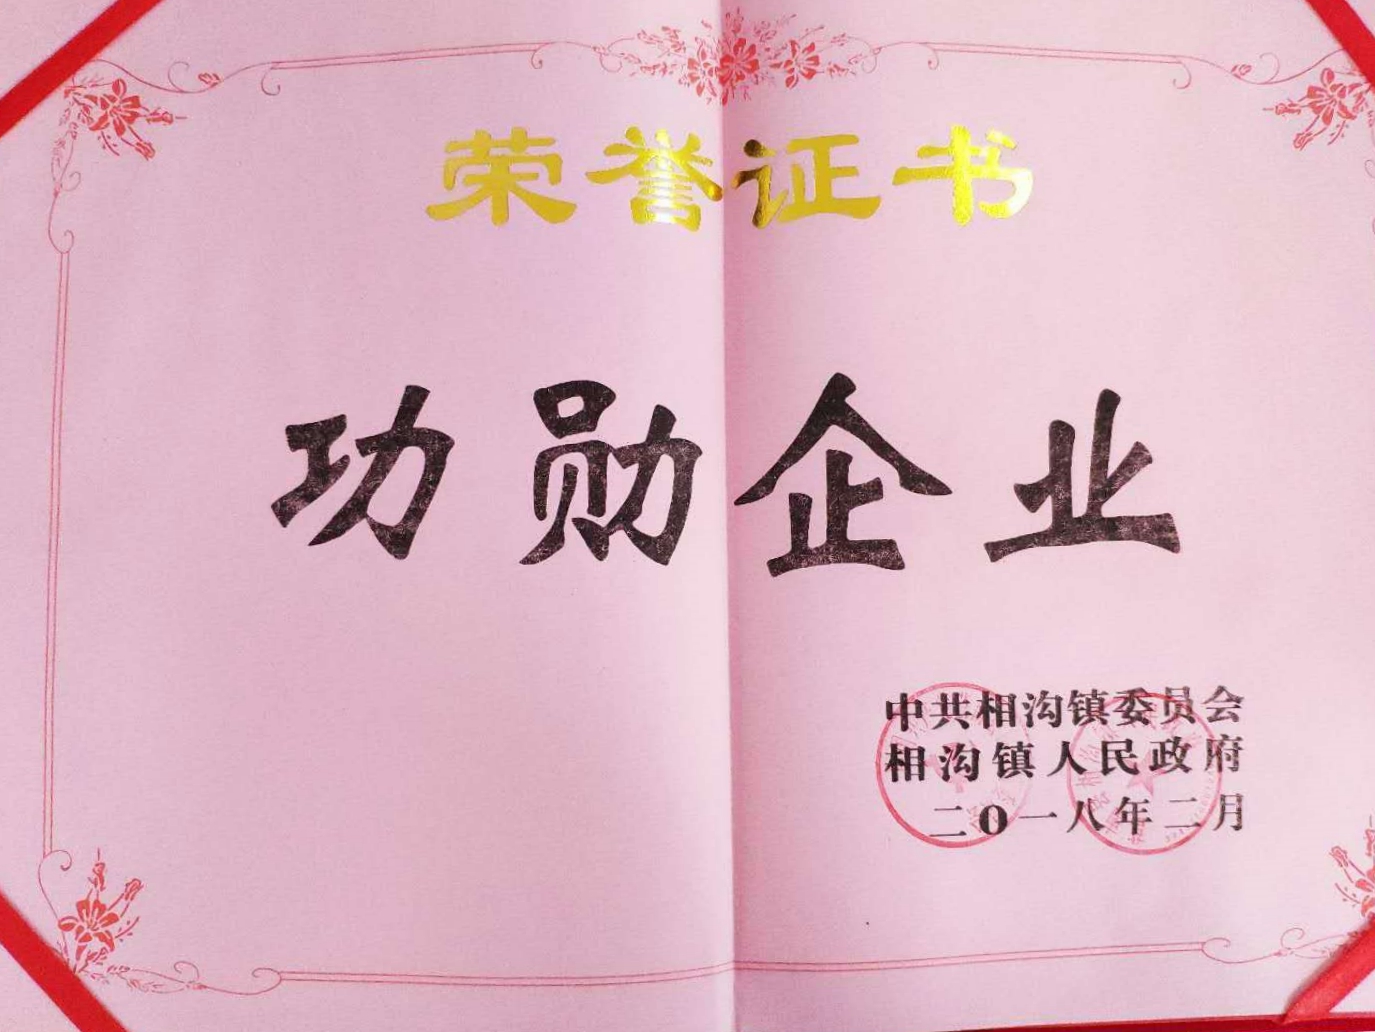 荣誉证书
功勋企业
中共相沟镇委员会
相沟镇人民政府
二0一八年二月